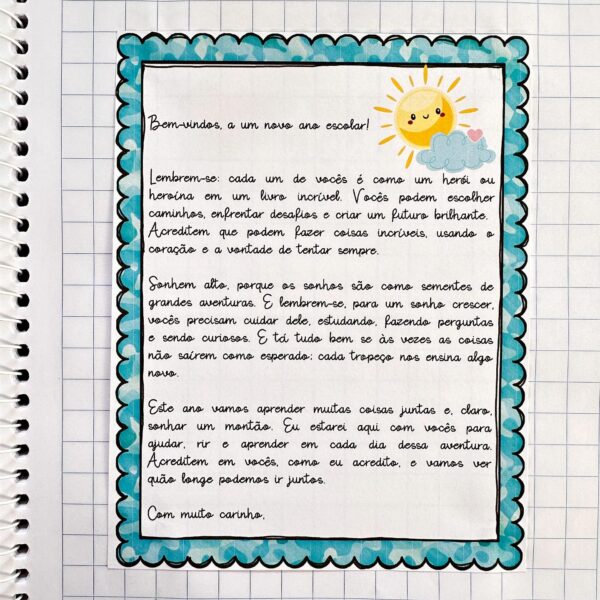 Bem-vindos, a um novo ano escolar!
Lembrem-se: cada um de vocês é como um herói ou
heroína em um livro incrível. Vocês podem escolher
caminhos, enfrentar desafios e criar um futuro brilhante.
Acreditem que podem fazer coisas incríveis, usando o
coração e a vontade de tentar sempre.
Sonhem alto, porque os sonhos são como sementes de
grandes aventuras. E lembrem-se, para um sonho crescer,
vocês precisam cuidar dele, estudando, fazendo perguntas
e sendo curiosos. E tá tudo bem se às vezes as coisas
não saírem como esperado; cada tropeço nos ensina algo
novo.
Este ano vamos aprender muitas coisas juntas e, claro,
sonhar um montão. Eu estarei aqui com vocês para
ajudar, rir e aprender em cada dia dessa aventura.
Acreditem em vocês, como eu acredito, e vamos ver
quão longe podemos ir juntos.
Com muito carinho,